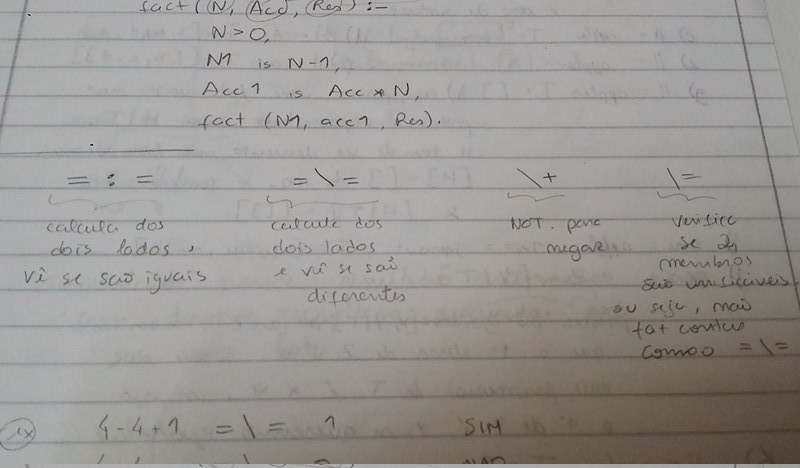 fact (N, Acc, Res) :-
N > 0,
N1 is N-1,
Acc1 is Acc * N,
fact (N1, acc1, Res).
= : =
calcula dos
dois lados,
vê se sao iguais
= \ =
calcula dos
dois lados
e vê se saõ
diferentes
\ +
NOT. para
negar
\ =
verifica
se 2
membros
sao unificáveis,
ou seja, não
faz contas
como o = \ =
ex
4-4+1 = \ = 1 SIM